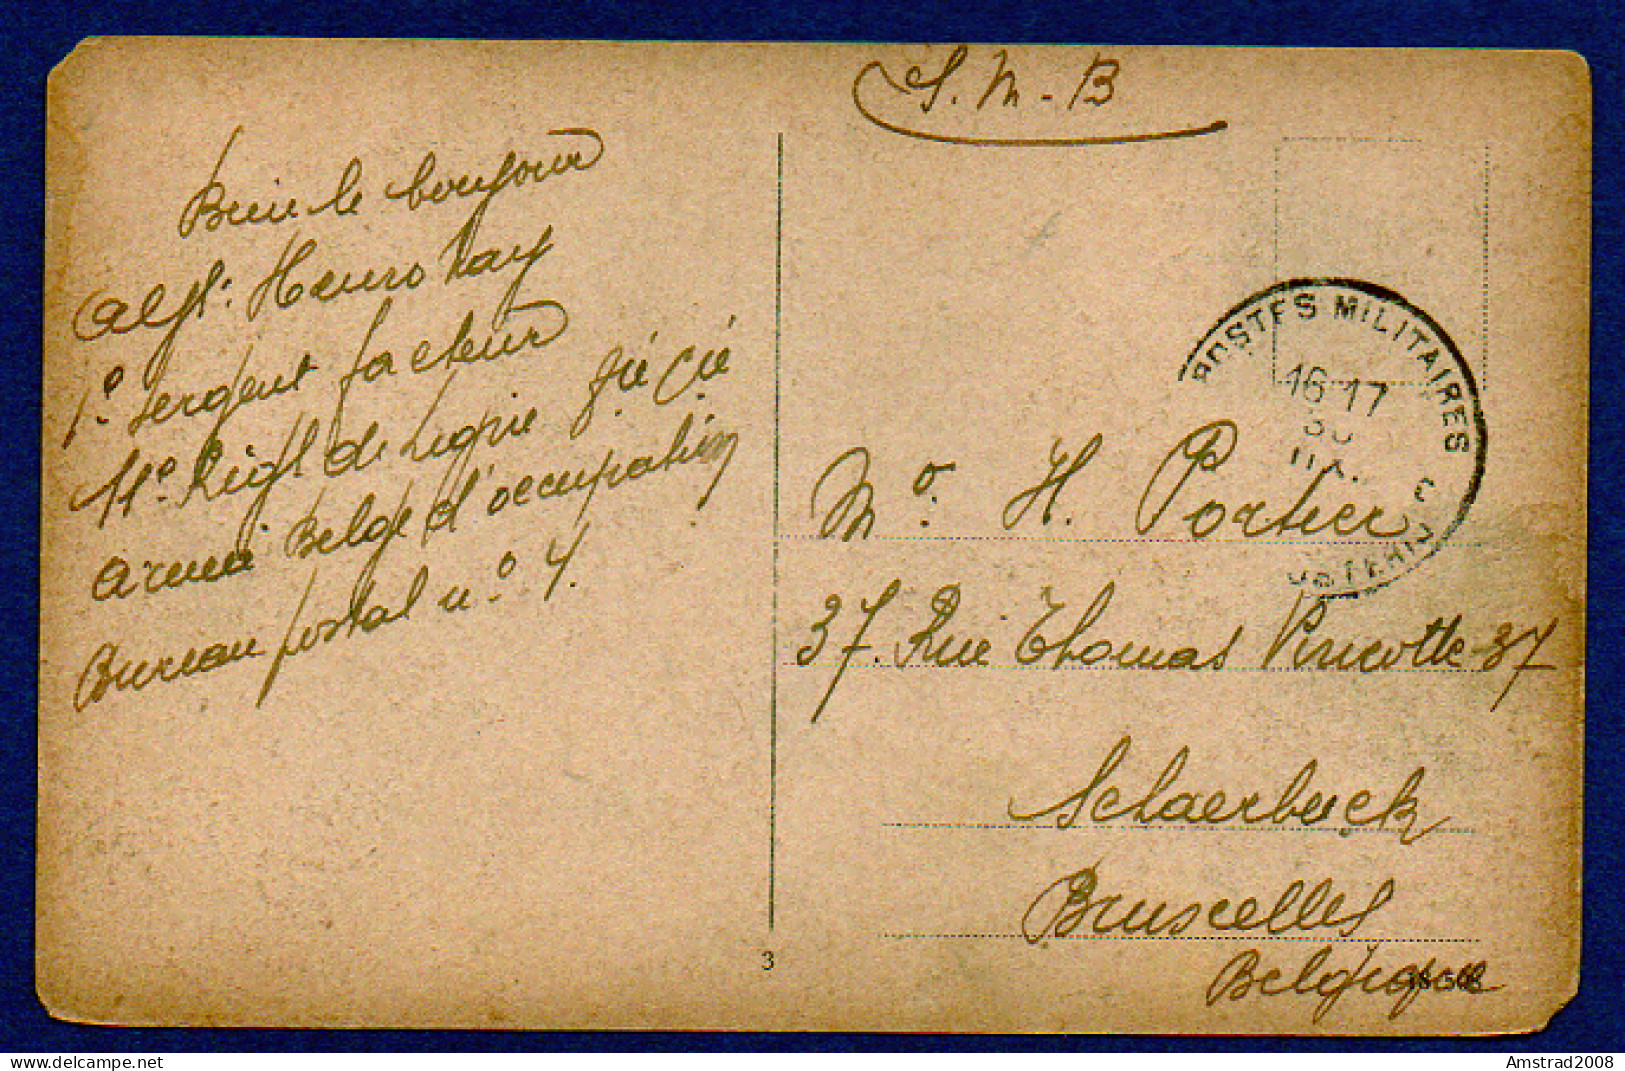 S. M. - B
Bien le bonjour
Alph. Hennotay
1º. sergent facteur
11º. Régt de Ligne
armée Belge d'occupation
Bureau postal nº. 4.
POSTES MILITAIRES
16-17
30
Mº. H. Portier
37. Rue Thomas Vincotte 37
Schaerbeek
Bruxelles
Belgique
3
delcampe.net
Amstrad2008